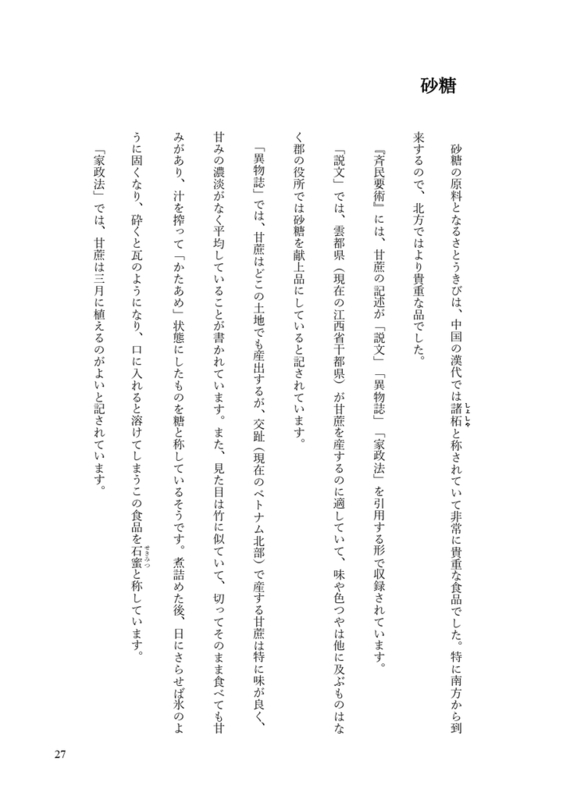 砂糖
砂糖の原料となるさとうきびは、中国の漢代では諸柘と称されていて非常に貴重な食品でした。特に南方から到
しょしゃ
来するので、北方ではより貴重な品でした。
『斉民要術』には、甘蔗の記述が「説文」「異物誌」「家政法」を引用する形で収録されています。
「説文」では、雲都県（現在の江西省干都県）が甘蔗を産するのに適していて、味や色つやは他に及ぶものはな
く郡の役所では砂糖を献上品にしていると記されています。
「異物誌」では、甘蔗はどこの土地でも産出するが、交趾（現在のベトナム北部）で産する甘蔗は特に味が良く、
甘みの濃淡がなく平均していることが書かれています。また、見た目は竹に似ていて、切ってそのまま食べても甘
みがあり、汁を搾って「かたあめ」状態にしたものを糖と称しているそうです。煮詰めた後、日にさらせば氷のよ
うに固くなり、砕くと瓦のようになり、口に入れると溶けてしまうこの食品を石蜜と称しています。
せきみつ
「家政法」では、甘蔗は三月に植えるのがよいと記されています。
27